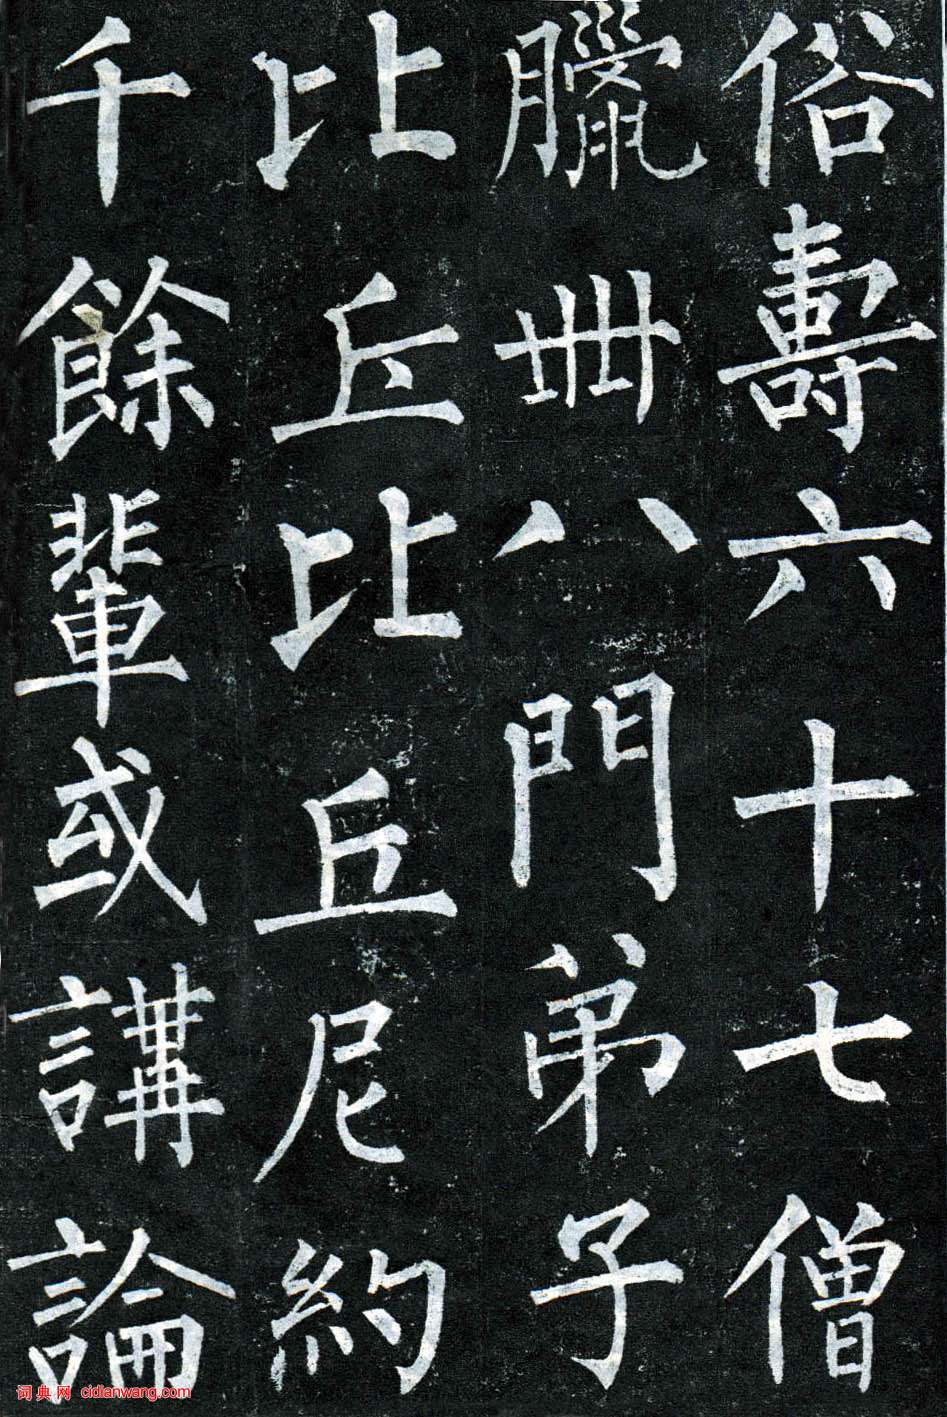 俗壽六十七僧
臘卌八門弟子
比丘比丘尼約
千餘輩或講論
词典网 cidianwang.com